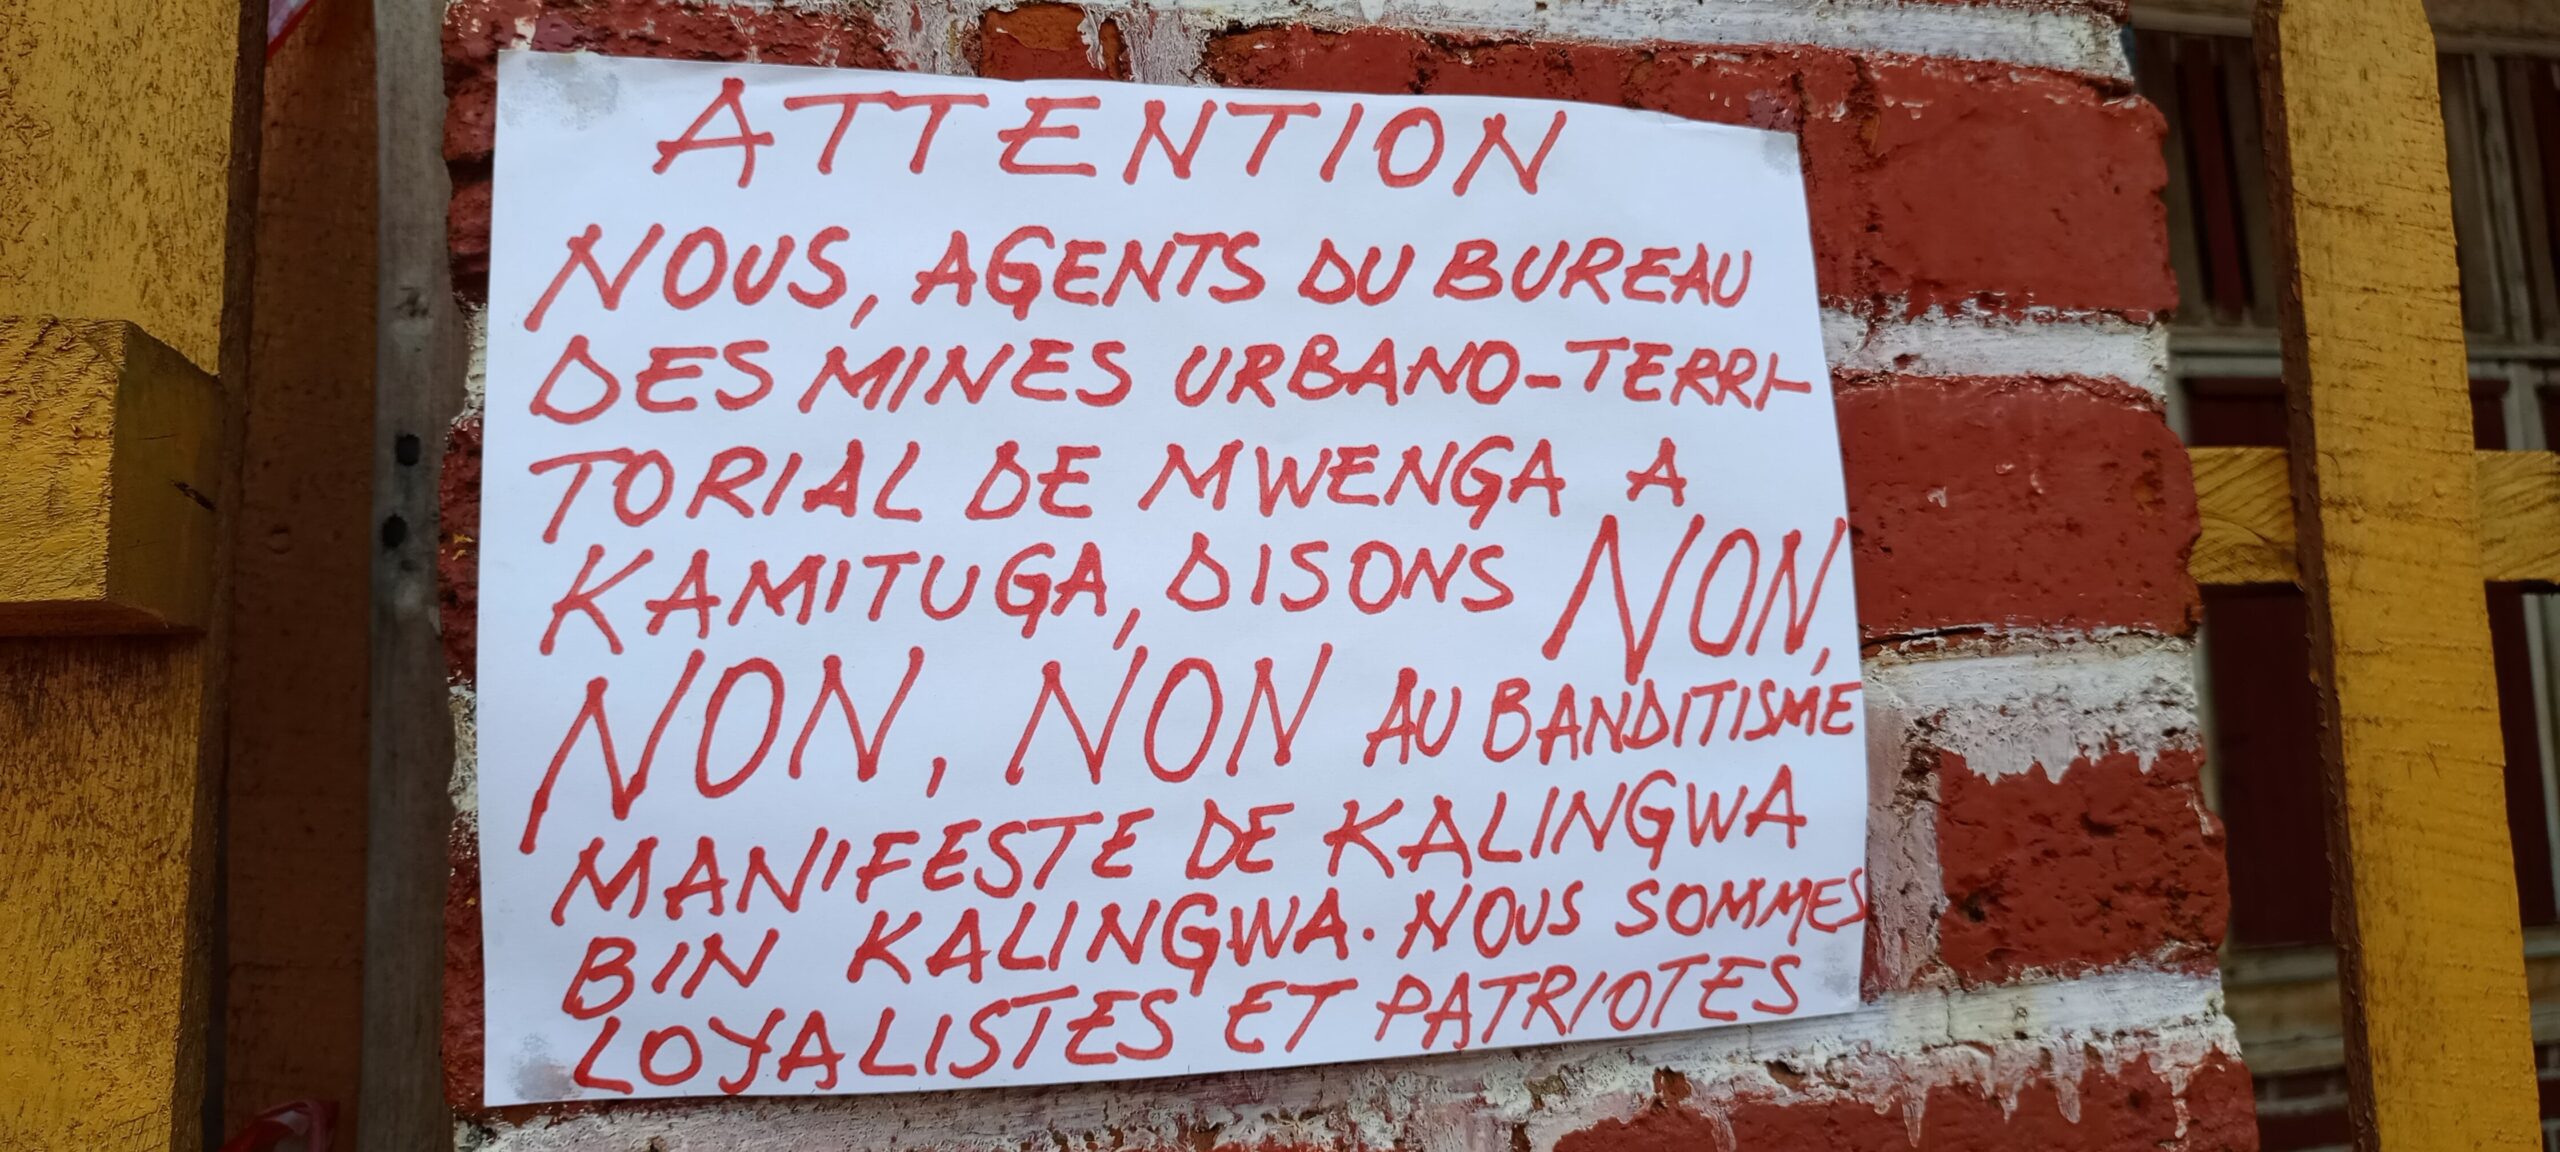 ATTENTION
NOUS, AGENTS DU BUREAU
DES MINES URBANO-TERRI-
TORIAL DE MWENGA A
KAMITUGA, DISONS NON,
NON, NON AU BANDITISME
MANIFESTE DE KALINGWA
BIN KALINGWA. NOUS SOMMES
LOYALISTES ET PATRIOTES